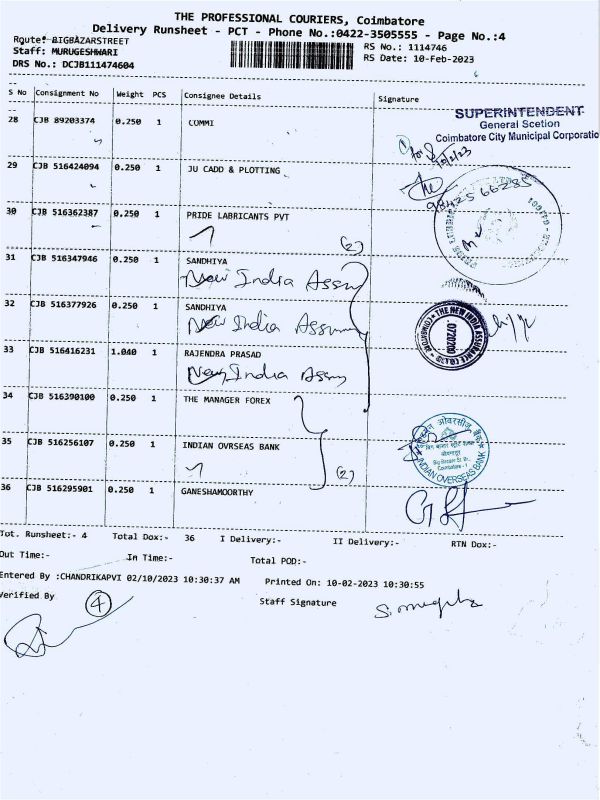 THE PROFESSIONAL COURIERS, Coimbatore
Delivery Runsheet - PCT - Phone No.:0422-3505555 - Page No.:4
Route: BIGBAZARSTREET
RS No.: 1114746
Staff: MURUGESHWARI
RS Date: 10-Feb-2023
DRS No.: DCJB111474604
S No Consignment No Weight PCS Consignee Details Signature
SUPERINTENDENT
General Scetion
Coimbatore City Municipal Corporatio
28 CJB 89203374 0.250 1 COMMI
29 CJB 516424094 0.250 1 JU CADD & PLOTTING
9842566285
30 CJB 516362387 0.250 1 PRIDE LABRICANTS PVT
(2)
31 CJB 516347946 0.250 1 SANDHIYA
New India Assu
32 CJB 516377926 0.250 1 SANDHIYA
New India Assu
THE NEW INDIA ASSURANCE CO LTD
33 CJB 516416231 1.040 1 RAJENDRA PRASAD
New India Assu
34 CJB 516390100 0.250 1 THE MANAGER FOREX
35 CJB 516256107 0.250 1 INDIAN OVRSEAS BANK
(2)
इण्डियन ओवरसीज़ बैंक
Coimbatore - 1
INDIAN OVERSEAS BANK
36 CJB 516295901 0.250 1 GANESHAMOORTHY
Tot. Runsheet:- 4 Total Dox:- 36 I Delivery:- II Delivery:- RTN Dox:-
Out Time:- In Time:- Total POD:-
Entered By :CHANDRIKAPVI 02/10/2023 10:30:37 AM Printed On: 10-02-2023 10:30:55
Verified By
4
Staff Signature